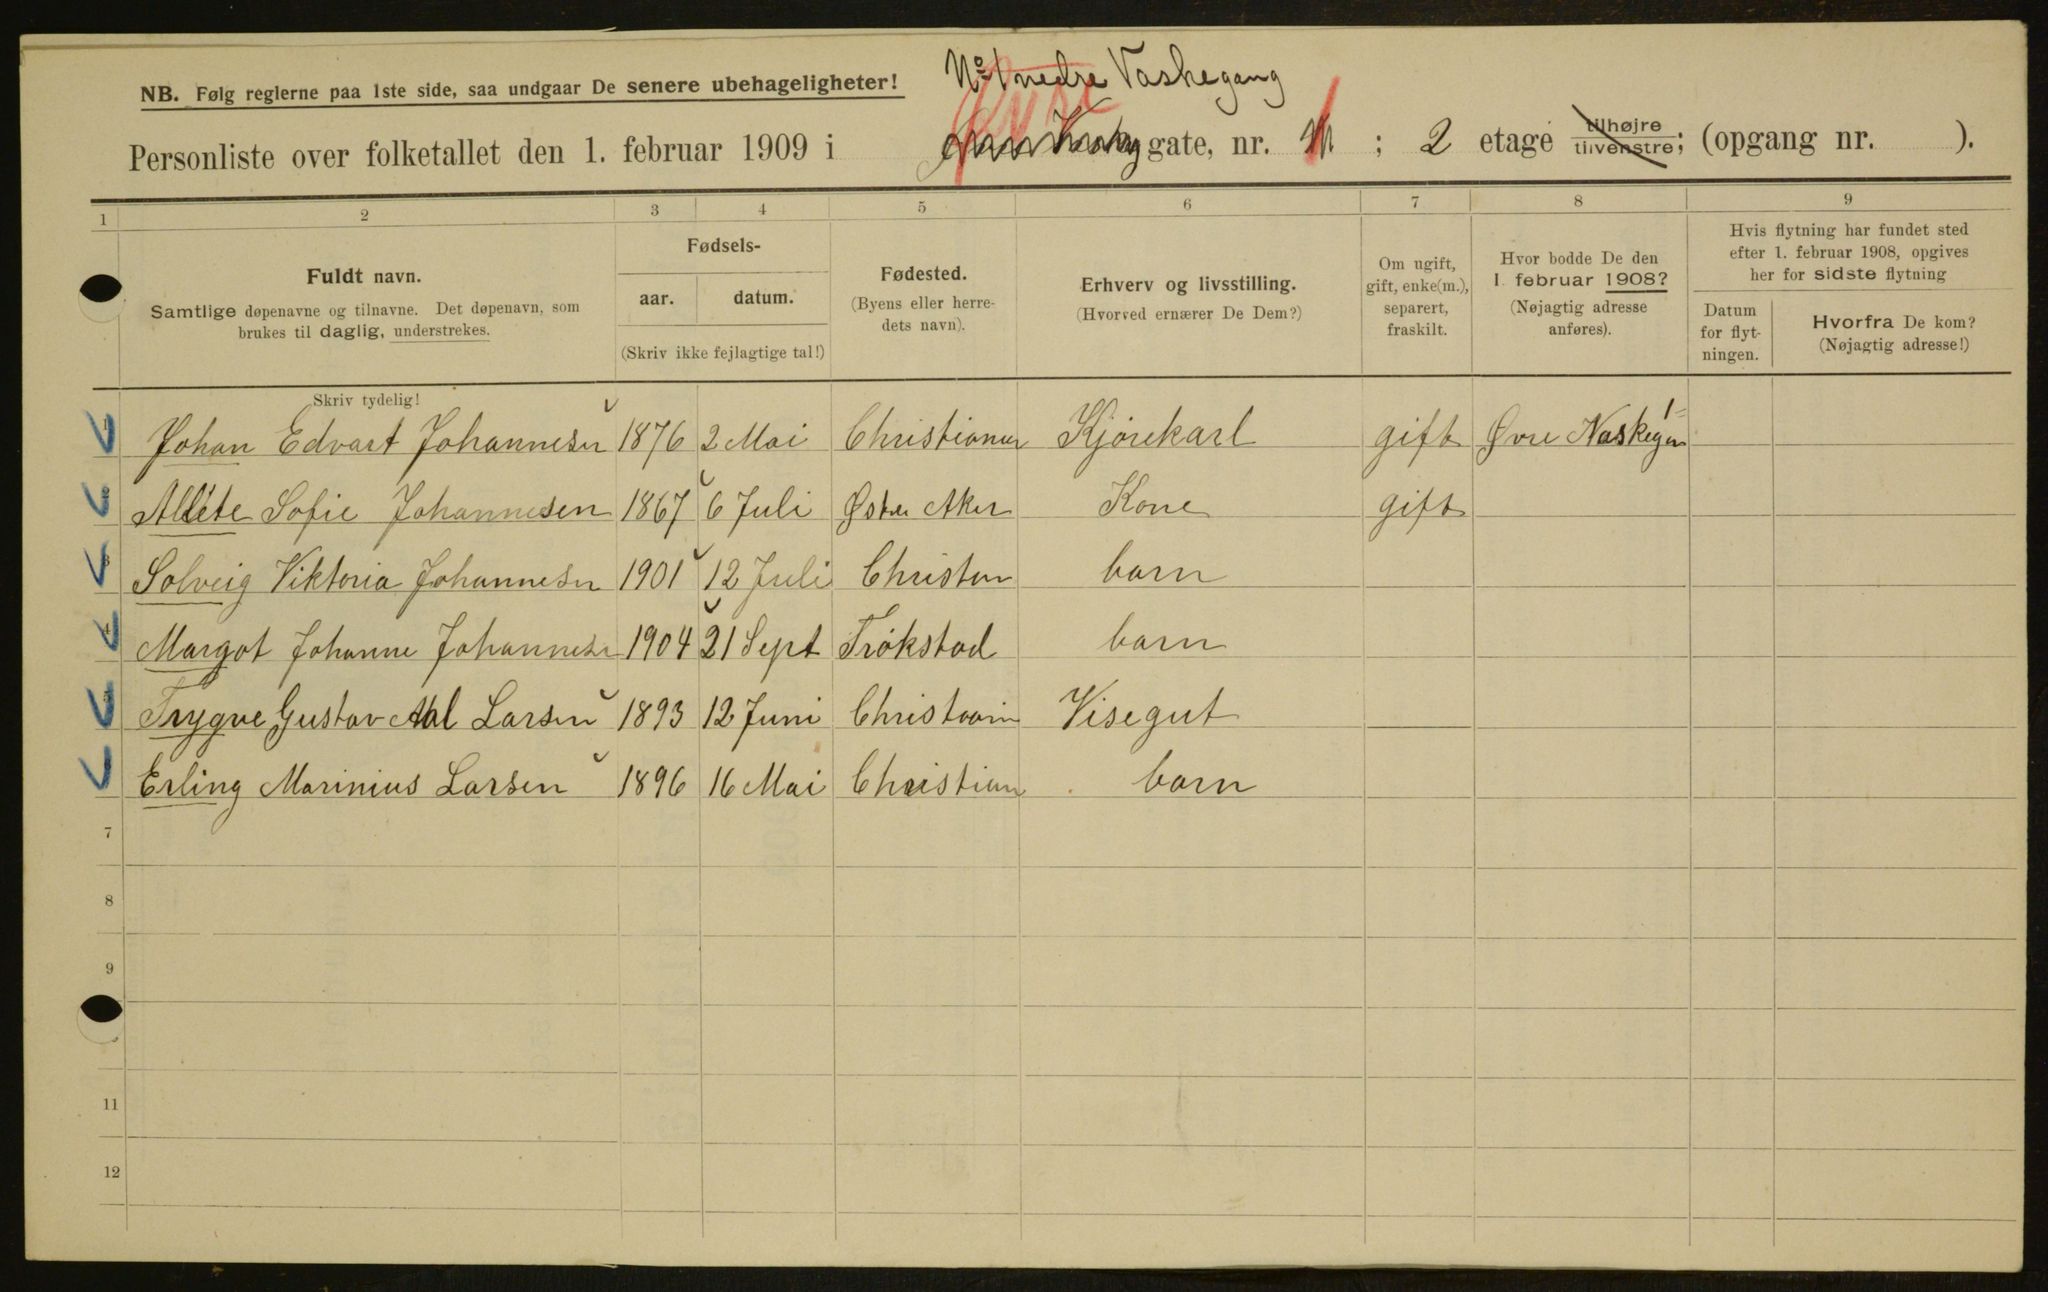 NB. Følg reglerne paa 1ste side, saa undgaar De senere ubehageligheter!
No 1 nedre Vaskegang
Øvre
Personliste over folketallet den 1. februar 1909 i gate, nr. ; 2 etage tilhøjre tilvenstre; (opgang nr. ).
1 2 3 4 5 6 7 8 9
Fuldt navn.
Samtlige døpenavne og tilnavne. Det døpenavn, som
brukes til daglig, understrekes.
Fødsels-
aar. datum.
(Skriv ikke fejlagtige tal!)
Fødested.
(Byens eller herre-
dets navn).
Erhverv og livsstilling.
(Hvorved ernærer De Dem?)
Om ugift,
gift, enke(m.),
separert,
fraskilt.
Hvor bodde De den
1. februar 1908?
(Nøjagtig adresse
anføres).
Hvis flytning har fundet sted
efter 1. februar 1908, opgives
her for sidste flytning
Datum
for flyt-
ningen.
Hvorfra De kom?
(Nøjagtig adresse!)
Skriv tydelig!
1 Johan Edvart Johannesn 1876 2 Mai Christiania Kjørekarl gift Øvre Vaskegan 1
2 Allete Sofie Johannesen 1867 6 Juli Østre Aker Kone gift
3 Solveig Viktoria Johannesn 1901 12 Juli Christan barn
4 Margot Johanne Johannesn 1904 21 Sept Trøkstad barn
5 Trygve Gustav Larsen 1893 12 Juni Christiania Visegut
6 Erling Marinius Larsen 1896 16 Mai Christian barn
7
8
9
11
12